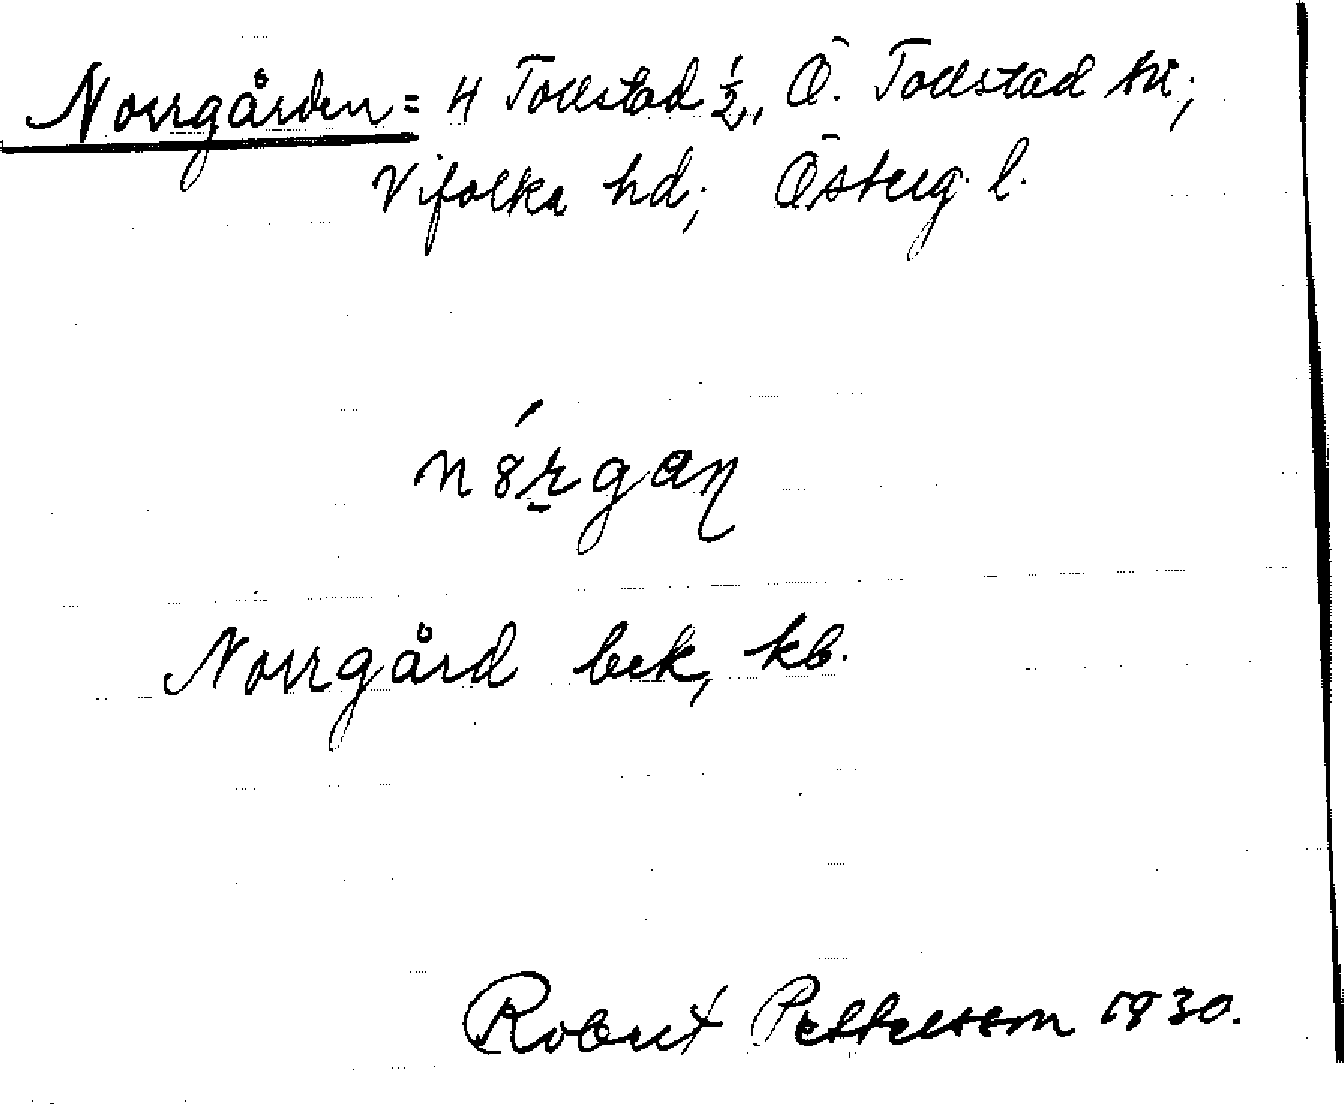 Norrgården = H Tollstad ½, Ö. Tollstad sn;
Vifolka hd; Österg. l.
Norrgård bek, kb.
Robert Pettersson 1930.